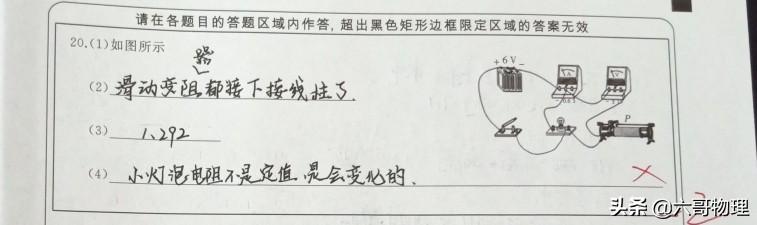 请在各题目的答题区域内作答,超出黑色矩形边框限定区域的答案无效
20.(1)如图所示
+ 6 V −
(2) 滑动变阻器都接下接线柱了.
P
(3) 1.292
(4) 小灯泡电阻不是定值,是会变化的.
头条 @六哥物理